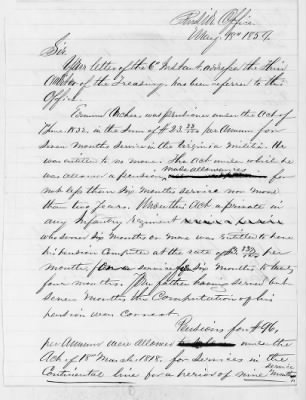 Pension Office
May 9th 1859
Sir
Your letter of the 6th Inst to the Third
Auditor of the Treasury, has been referred to this
Office.
Archer was pensioned under the Act of
June 1832, in the Sum of $23 33/100 per Annum for
Seven Months Service in the Virginia Militia. He
was entitled to no more. The Act under which he
was allowed a pension made allowances for
not less than Six Months Service nor more
than two years. Under this Act a private in
any Infantry Regiment
who served Six Months or more was Entitled to have
his pension Computed at the rate of $3 33/100 per
month, for a service of Six Months to twenty
four months. father having served but
Seven Months the Computation of his
pension was correct.
Pensions for $96,
per Annum were allowed under the
Act of 18th March 1818, for Services in the
Continental line for a period of nine service months